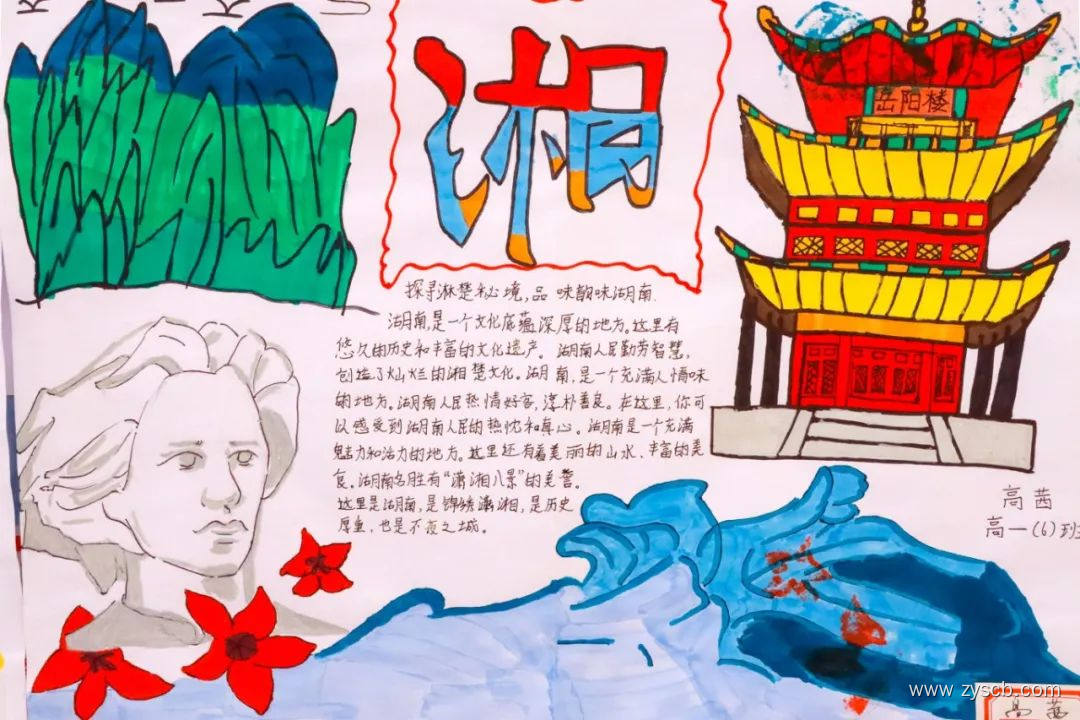 湘
岳阳楼
探寻湘楚秘境,品味韵味湖南.
湖南,是一个文化底蕴深厚的地方。这里有
悠久的历史和丰富的文化遗产。湖南人民勤劳智慧,
创造了灿烂的湘楚文化。湖南,是一个充满人情味
的地方。湖南人民热情好客,淳朴善良。在这里,你可
以感受到湖南人民的热忱和真心。湖南是一个充满
魅力和活力的地方。这里还有着美丽的山水、丰富的美
食。湖南名胜有“潇湘八景”的美誉。
这里是湖南,是锦绣潇湘,是历史
厚重,也是不夜之城。
高茜
高一(6)班
www.zyscb.com
高茜